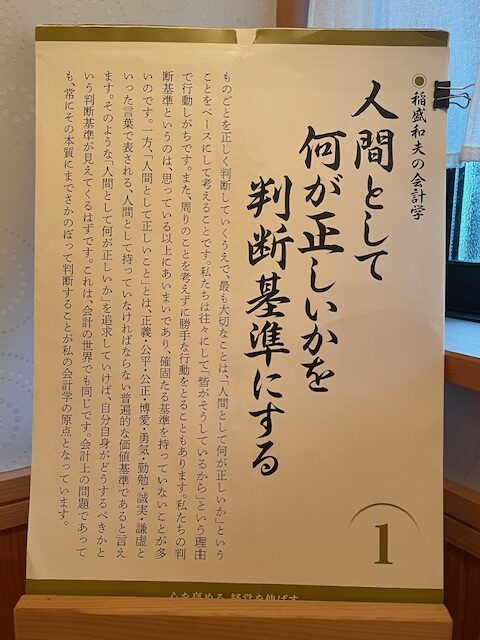 稲盛和夫の会計学
人間として
何が正しいかを
判断基準にする
ものごとを正しく判断していくうえで、最も大切なことは、「人間として何が正しいか」という
ことをベースにして考えることです。私たちは往々にして「皆がそうしているから」という理由
で行動しがちです。また、周りのことを考えずに勝手な行動をとることもあります。私たちの判
断基準というのは、思っている以上にあいまいであり、確固たる基準を持っていないことが多
いのです。一方、「人間として正しいこと」とは、正義・公平・公正・博愛・勇気・勤勉・誠実・謙虚と
いった言葉で表される、人間として持っていなければならない普遍的な価値基準であると言え
ます。そのような「人間として何が正しいか」を追求していけば、自分自身がどうするべきかと
いう判断基準が見えてくるはずです。これは、会計の世界でも同じです。会計上の問題であって
も、常にその本質にまでさかのぼって判断することが私の会計学の原点となっています。
1
心を高める 経営を伸ばす